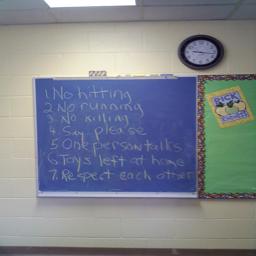 1. No hitting
2. No running
3. No killing
4. Say please
5. One person talks
6. Toys left at home
7. Respect each other